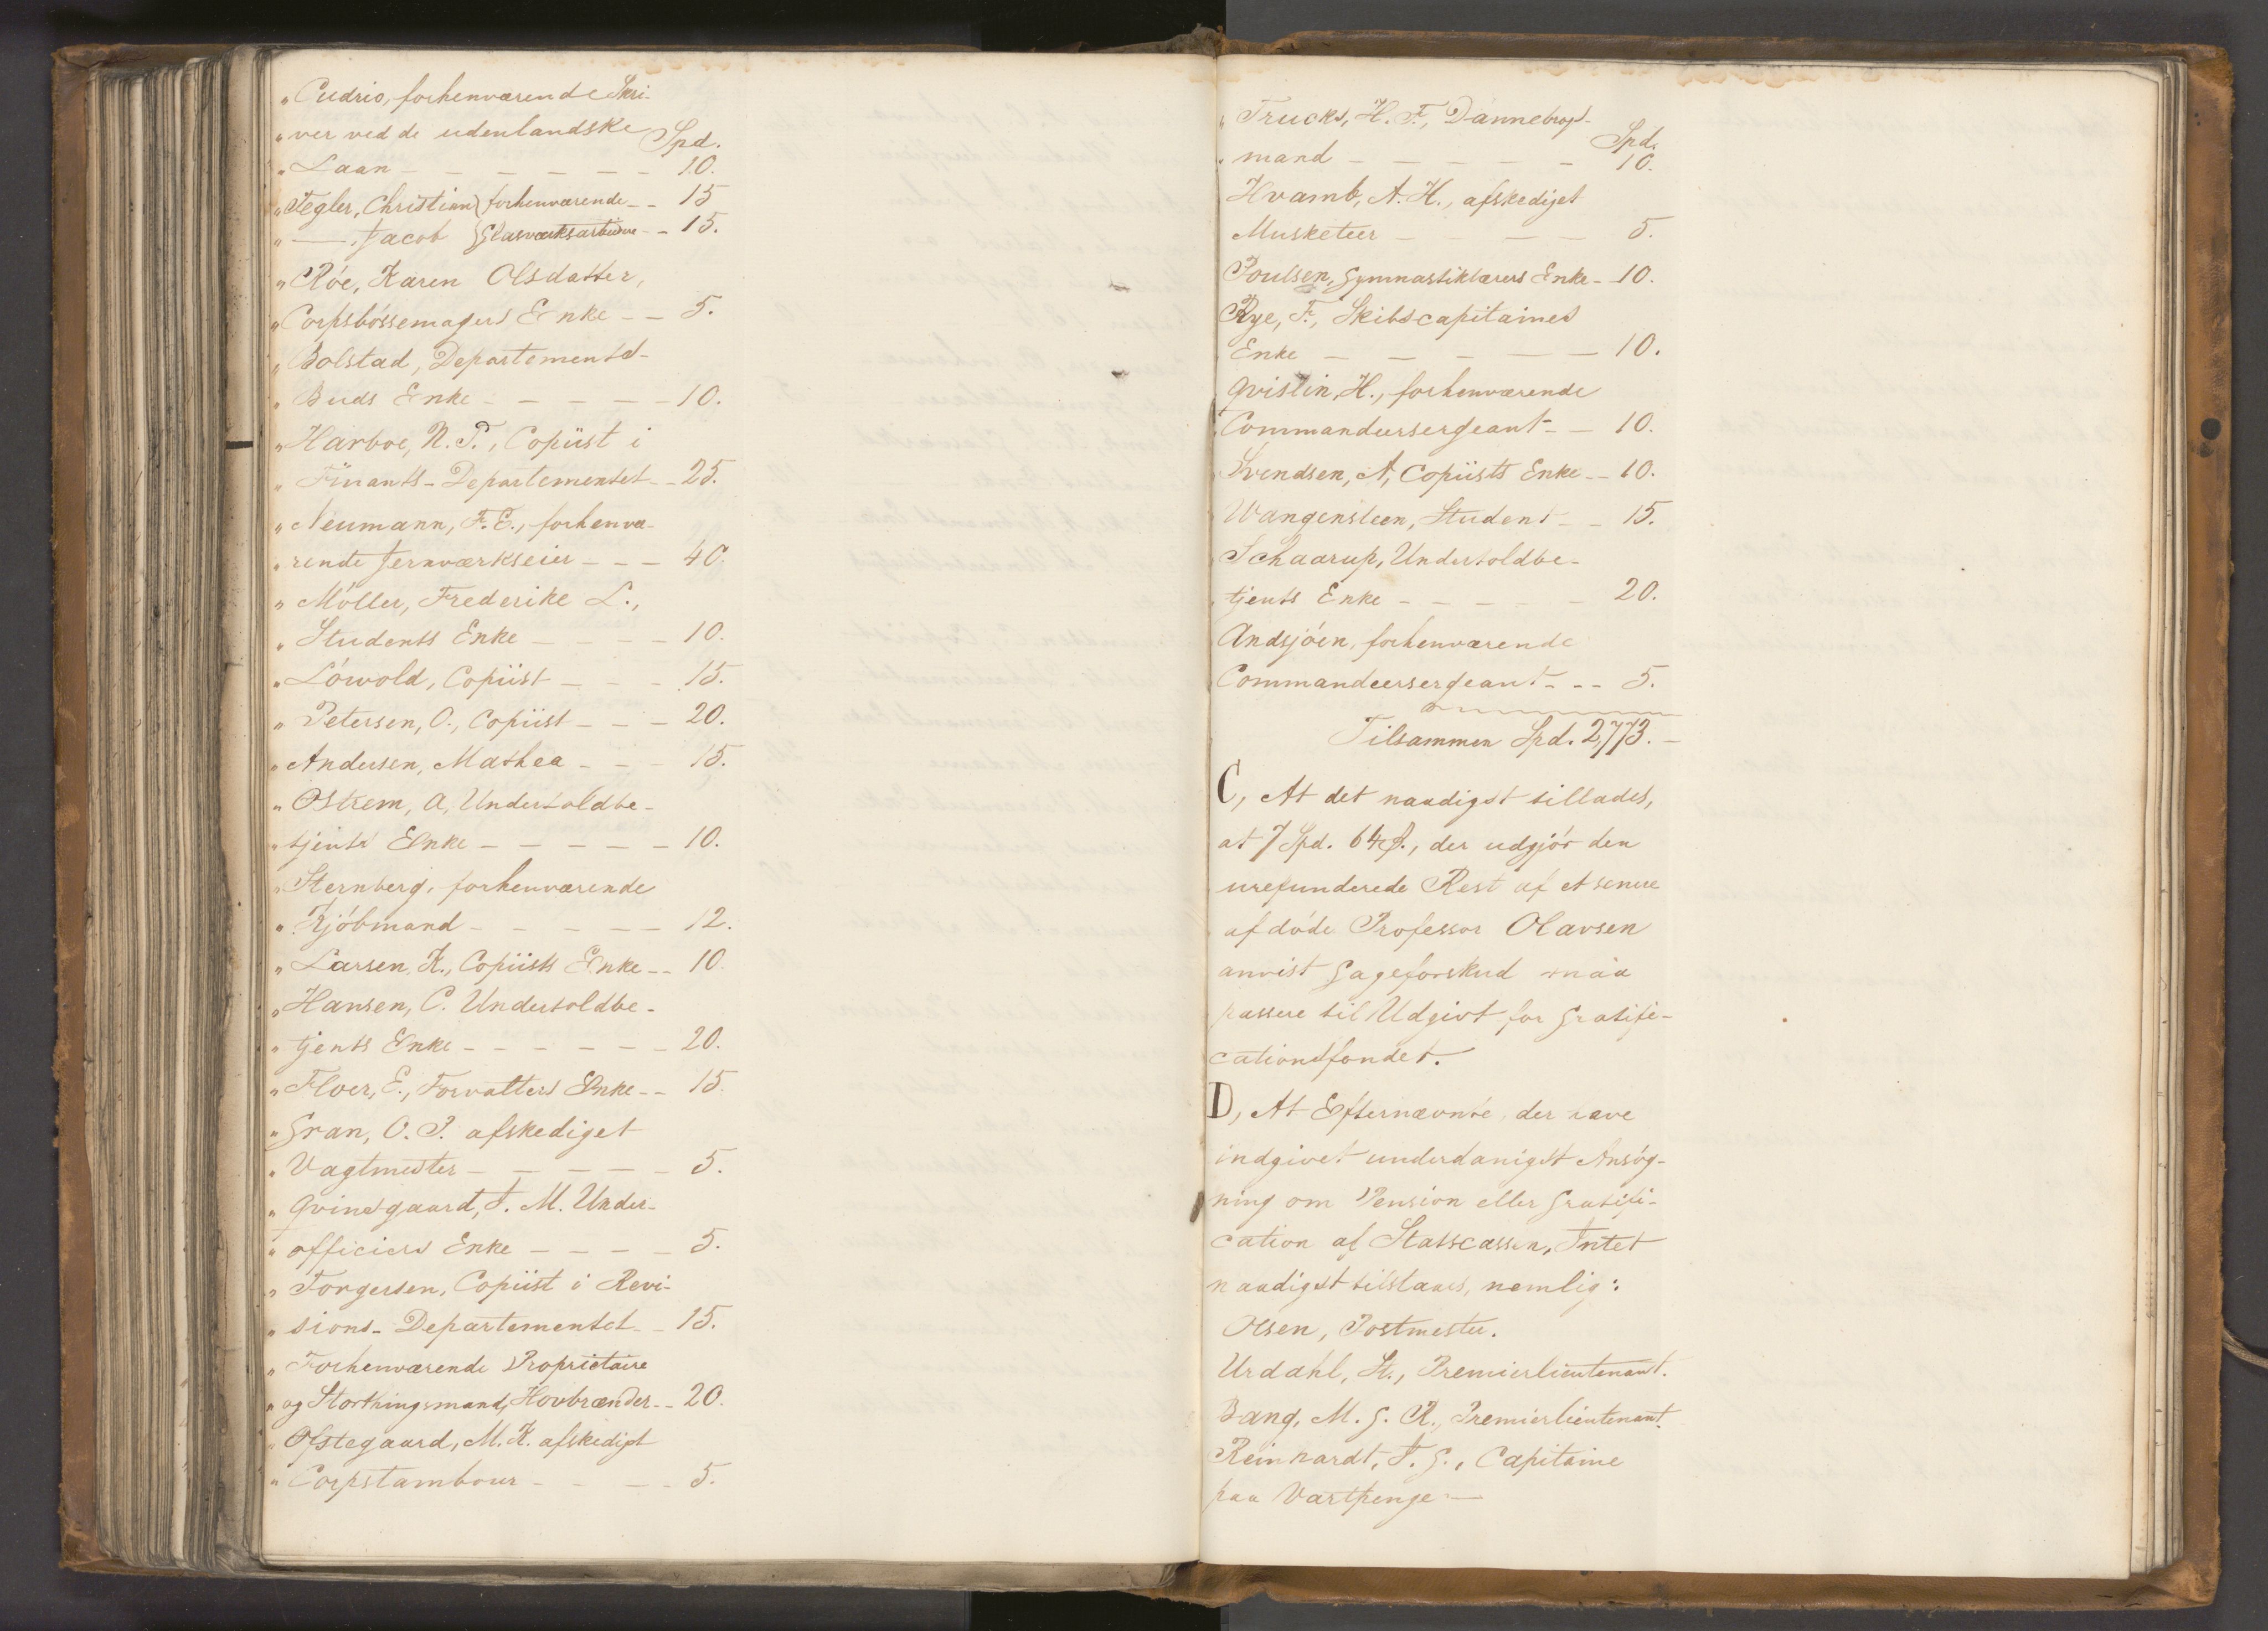 „ Cudrio, forhenværende Skri-
„ ver ved de udenlandske Spd.
„ Laan - - - - - - 10.
„ Tegler, Christian } forhenværende - - 15
„ —, Jacob } Glasværksarbeidere - - 15.
„ Röe, Karen Olsdatter,
„ Corpsbössemagers Enke - - 5.
„ Bolstad, Departements-
„ Buds Enke - - - - - 10.
„ Harboe, N. P., Copiist i
„ Finants-Departementet - - 25.
„ Neumann, F. E., forhenvæ-
„ rende Jernværkseier - - - 40.
„ Möller, Frederike L.,
„ Students Enke - - - - 10.
„ Löwold, Copiist - - - 15.
„ Petersen, O., Copiist - - - 20.
„ Andersen, Mathea - - - 15.
„ Ostrem, A, Undertoldbe-
„ tjents Enke - - - - - 10.
„ Sternberg, forhenværende
„ Kjöbmand - - - - - 12.
„ Larsen, K., Copiists Enke - - 10.
„ Hansen, C. Undertoldbe-
„ tjents Enke - - - - - - 20.
„ Floer, E., Forvalters Enke - - 15.
„ Gran, O. P. afskediget
„ Vagtmester - - - - - 5.
„ Qvinsgaard, J. M. Under-
„ officiers Enke - - - - 5.
„ Torgersen, Copiist i Revi-
„ sions-Departementet - - 15.
„ Forhenværende Proprietaire
„ og Storthingsmand, Hovbrænder - - 20.
„ Ofstegaard, M. K. afskediget
„ Corpstambour - - - - 5.
„ Trucks, H. F., Dannebrogs-
„ mand - - - - - - Spd. 10.
Hvamb, A. H., afskediget
Musketeer - - - - - 5.
Poulsen, Gymnastiklærers Enke - 10.
Rye, F., Skibscapitaines
Enke - - - - - 10.
Qvislin, H., forhenværende
Commandeersergeant - - 10.
Svendsen, A, Copiists Enke - - 10.
Wangensteen, Student - - 15.
Schaarup, Undertoldbe-
tjents Enke - - - - - 20.
Andsjöen, forhenværende
Commandeersergeant - - - 5.
Tilsammen Spd. 2,773. -
C, At det naadigst tillades,
at 7 Spd. 64 ß., der udgjör den
urefunderede Rest af et senere
afdöde Professor Olavsen
anvist Gageforskud maa
passere til Udgivt for Gratifi-
cationsfondet.
D, At Efternævnte, der have
indgivet underdanigst Ansög-
ning om Pension eller Gratifi-
cation af Statscassen, Intet
naadigst tilstaaes, nemlig:
Olsen, Postmester.
Urdahl, St., Premierlieutenant.
Bang, M. G. R., Premierlieutenant.
Reinhardt, J. G., Capitaine
paa Vartpenge. -